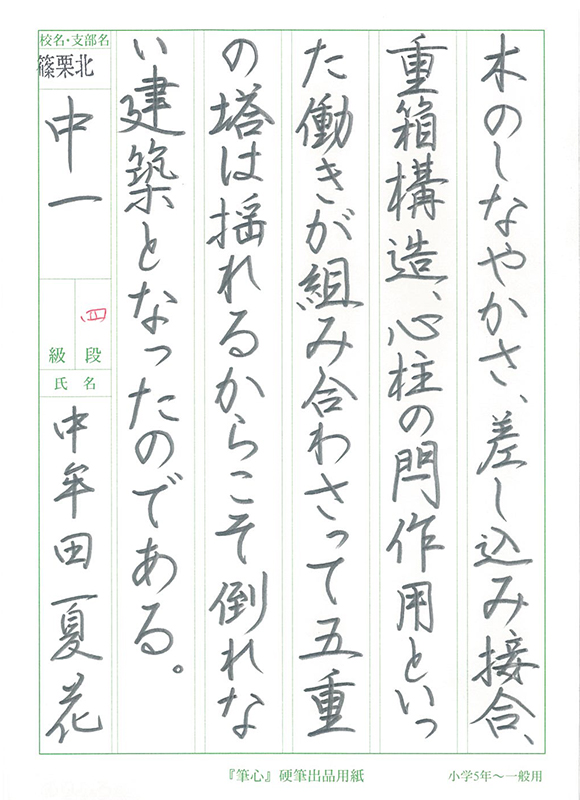 木のしなやかさ、差し込み接合、
重箱構造、心柱の閂作用といっ
た働きが組み合わさって五重
の塔は揺れるからこそ倒れな
い建築となったのである。
校名・支部名
篠栗北
中一
四
級 段
氏 名
中牟田夏花
『筆心』硬筆出品用紙
小学5年〜一般用